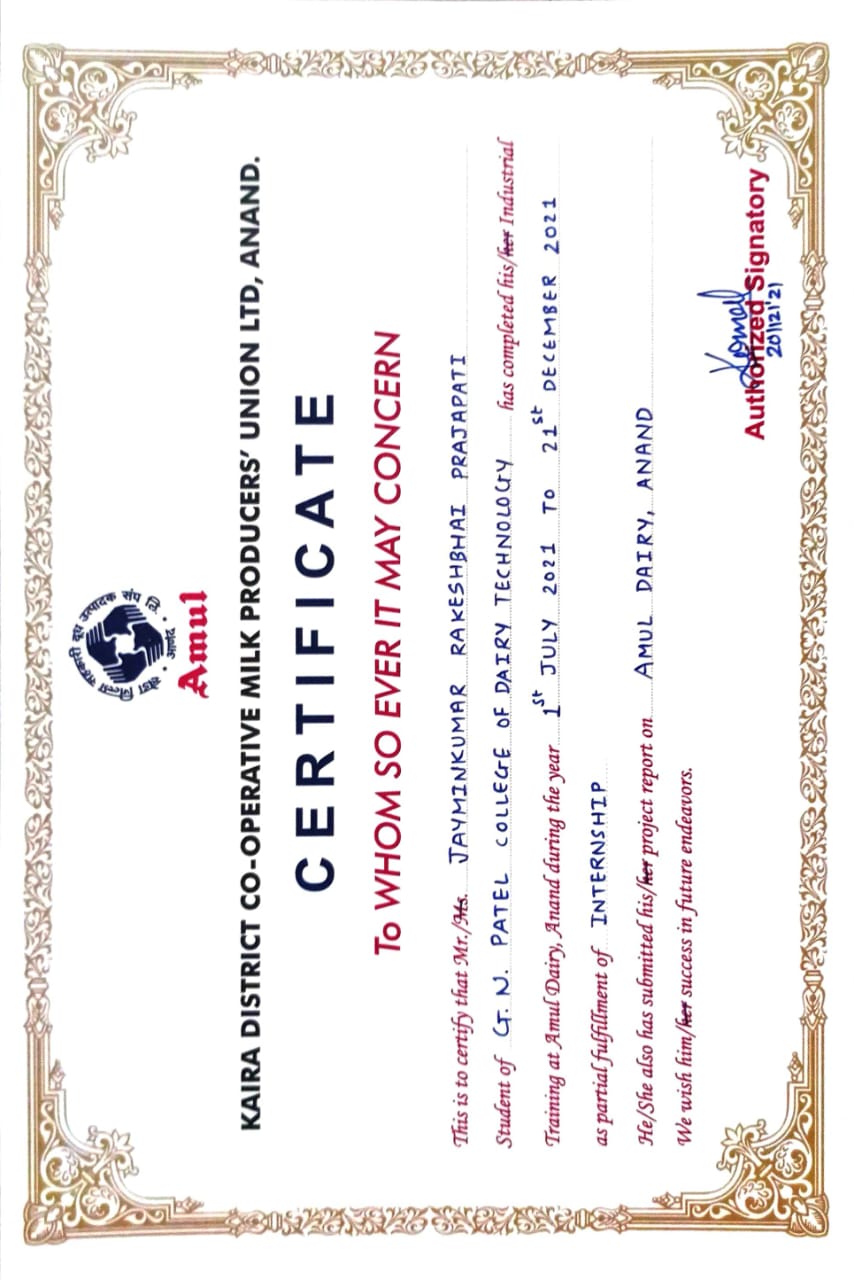 खेडा जिल्ला सहकारी दूध उत्पादक संघ लि. • आणंद •
Amul
KAIRA DISTRICT CO-OPERATIVE MILK PRODUCERS' UNION LTD, ANAND.
CERTIFICATE
To WHOM SO EVER IT MAY CONCERN
This is to certify that Mr./Ms. JAYMINKUMAR RAKESHBHAI PRAJAPATI
Student of G. N. PATEL COLLEGE OF DAIRY TECHNOLOGY has completed his/her Industrial
Training at Amul Dairy, Anand during the year 1st JULY 2021 TO 21st DECEMBER 2021
as partial fulfillment of INTERNSHIP
He/She also has submitted his/her project report on AMUL DAIRY, ANAND
We wish him/her success in future endeavors.
Authorized Signatory
20/12/'21